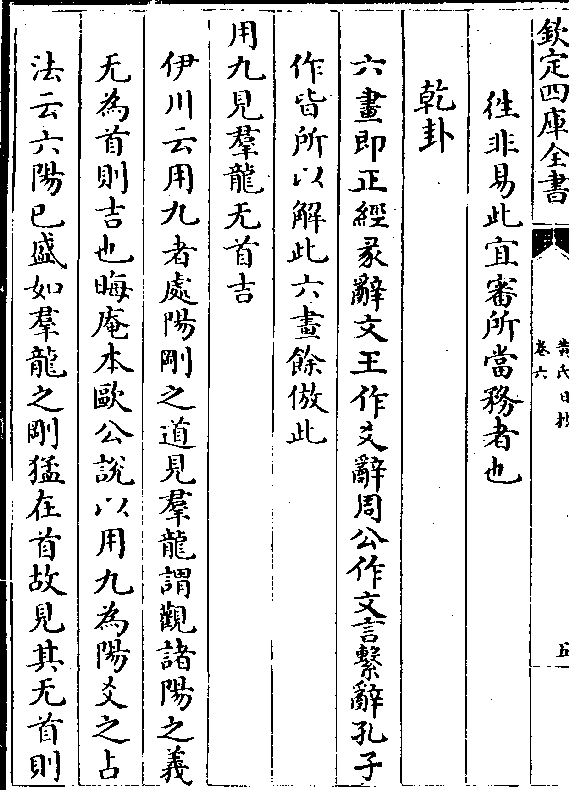 欽定四庫全書
黄氏日抄
卷六
五
徃非易此宜審所當務者也
乾卦
六畫即正經彖辭文王作爻辭周公作文言繫辭孔子
作皆所以解此六畫餘倣此
用九見羣龍无首吉
伊川云用九者處陽剛之道見羣龍謂觀諸陽之義
无為首則吉也晦庵本歐公說以用九為陽爻之占
法云六陽已盛如羣龍之剛猛在首故見其无首則